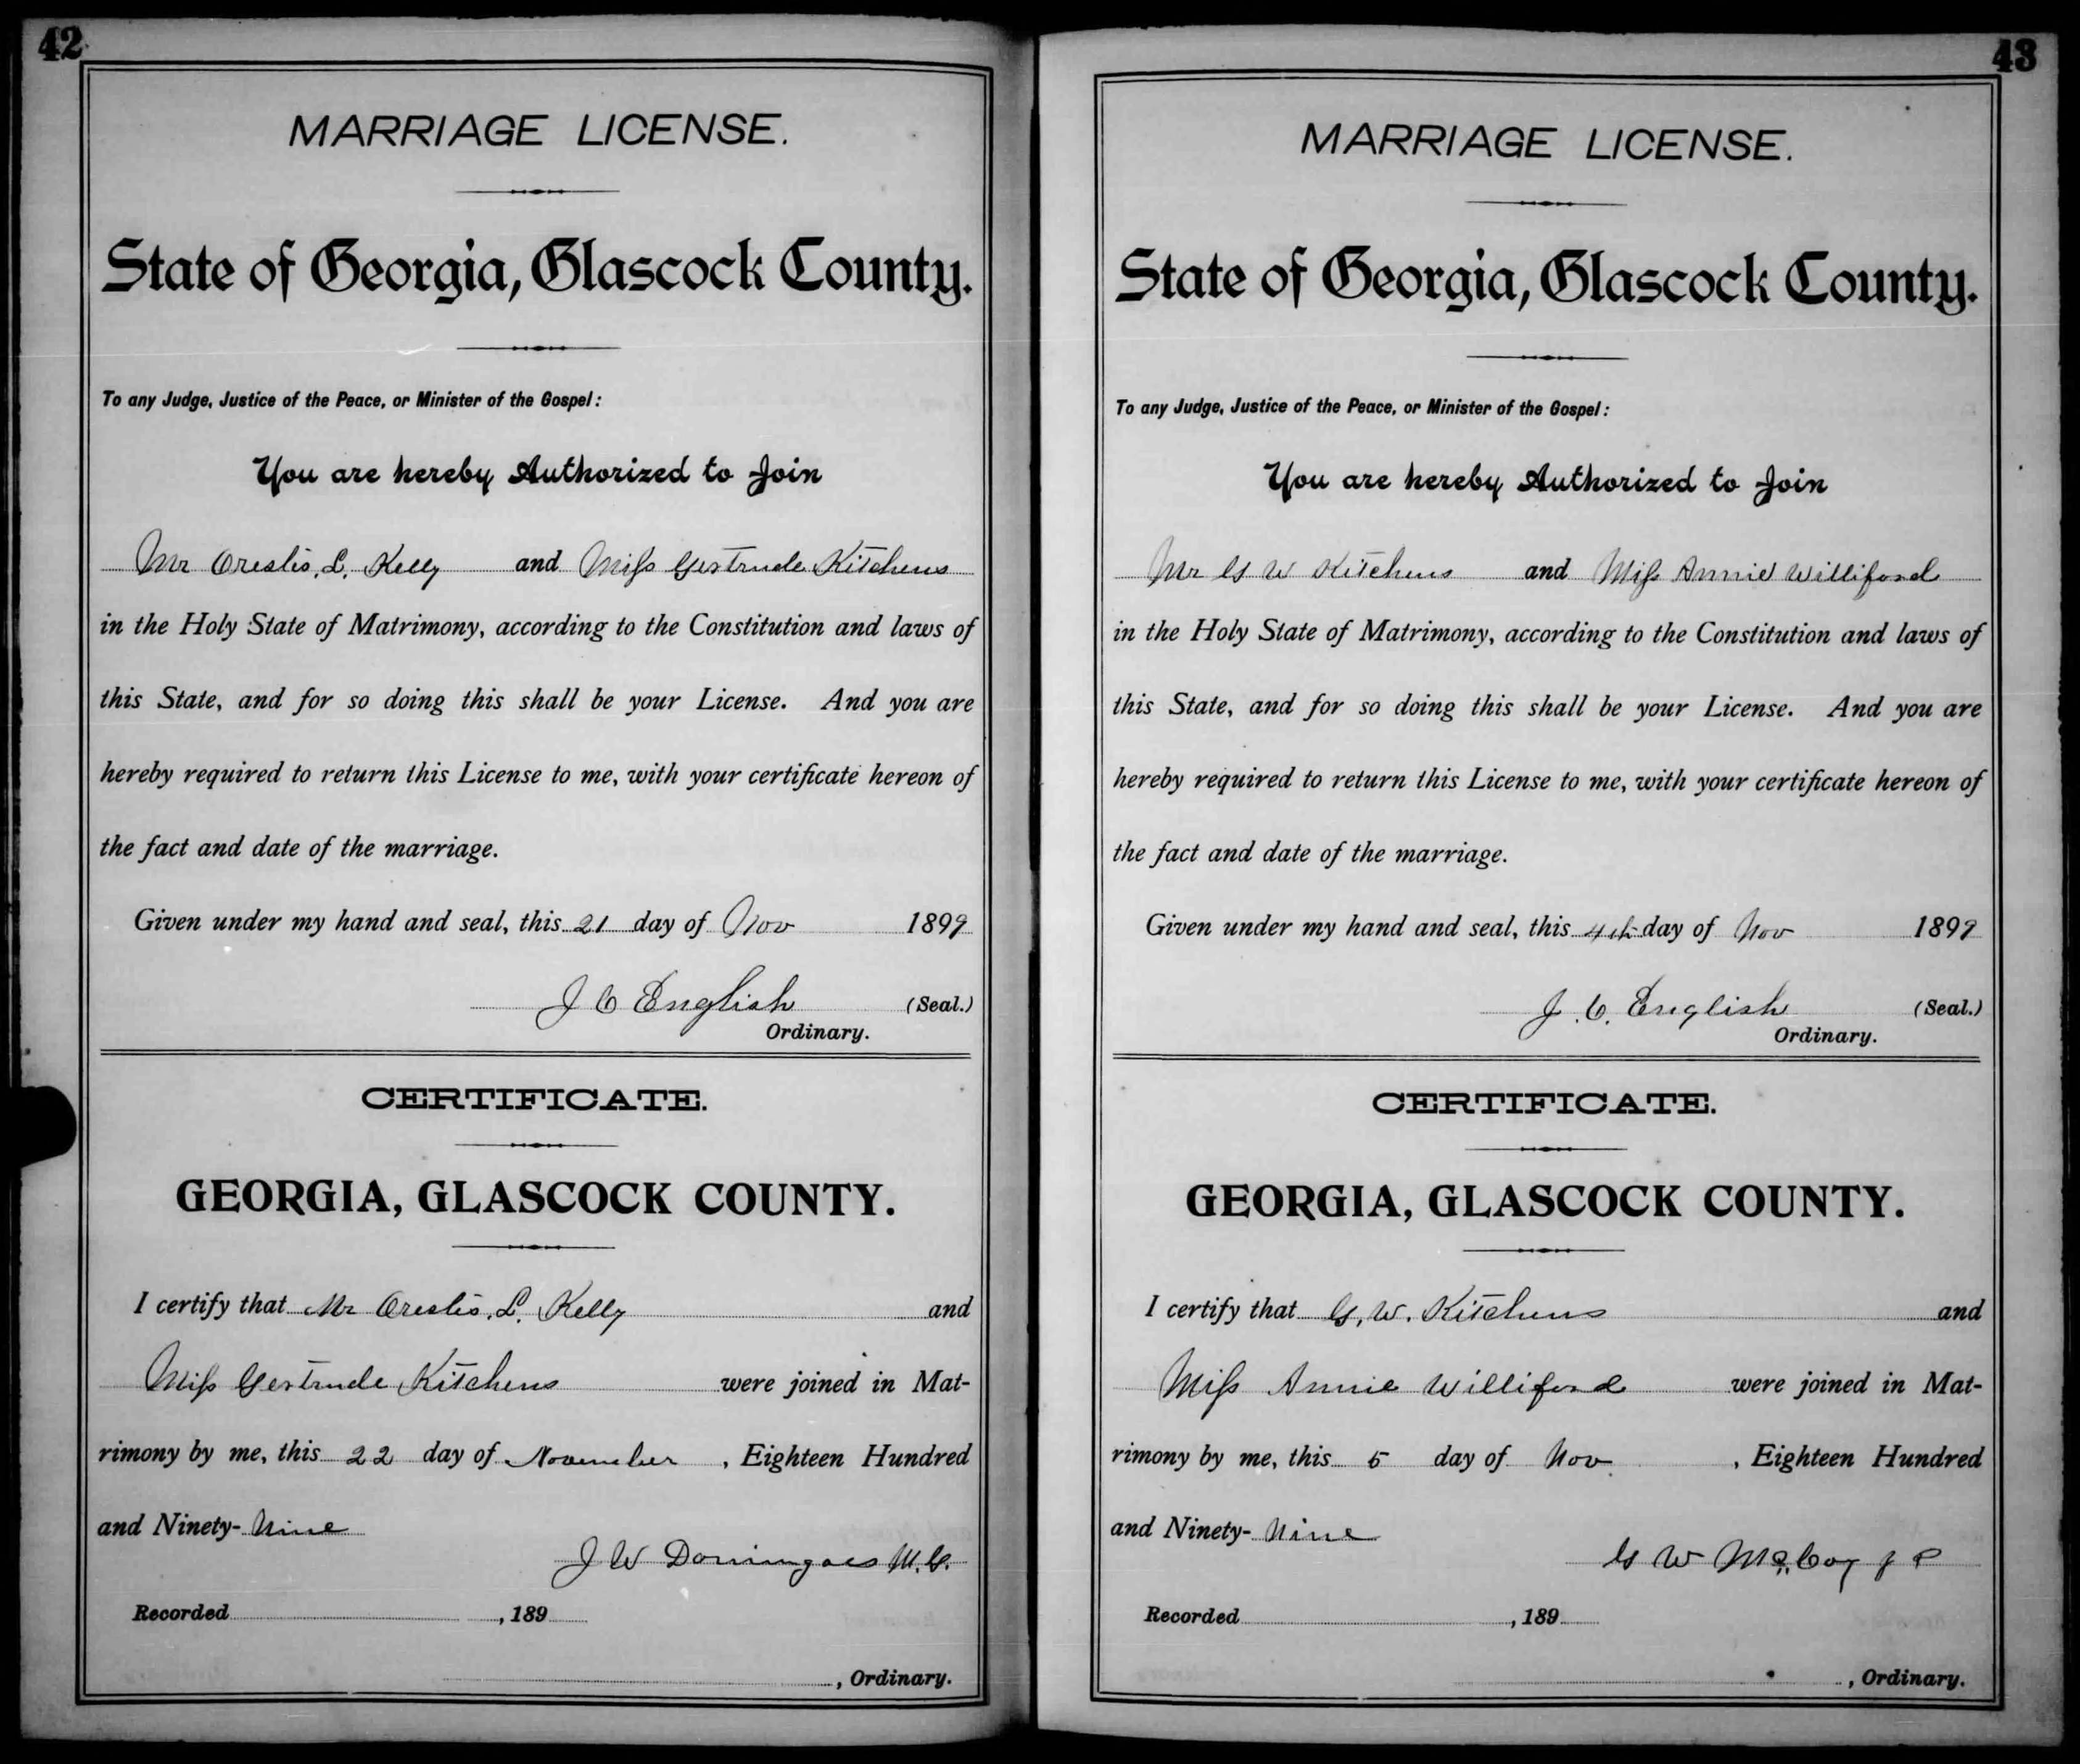 42
MARRIAGE LICENSE.
State of Georgia, Glascock County.
To any Judge, Justice of the Peace, or Minister of the Gospel:
You are hereby Authorized to Join
Mr Orestis. L. Kelly and Miss Gertrude Kitchens
in the Holy State of Matrimony, according to the Constitution and laws of
this State, and for so doing this shall be your License. And you are
hereby required to return this License to me, with your certificate hereon of
the fact and date of the marriage.
Given under my hand and seal, this 21 day of Nov 1899
J C English (Seal.)
Ordinary.
CERTIFICATE.
GEORGIA, GLASCOCK COUNTY.
I certify that Mr Orestis. L. Kelly and
Miss Gertrude Kitchens were joined in Mat-
rimony by me, this 22 day of November, Eighteen Hundred
and Ninety-Nine
J W Domingoes M.G.
Recorded , 189
, Ordinary.
43
MARRIAGE LICENSE.
State of Georgia, Glascock County.
To any Judge, Justice of the Peace, or Minister of the Gospel:
You are hereby Authorized to Join
Mr G W Kitchens and Miss Annie Williford
in the Holy State of Matrimony, according to the Constitution and laws of
this State, and for so doing this shall be your License. And you are
hereby required to return this License to me, with your certificate hereon of
the fact and date of the marriage.
Given under my hand and seal, this 4th day of Nov 1899
J. C. English (Seal.)
Ordinary.
CERTIFICATE.
GEORGIA, GLASCOCK COUNTY.
I certify that G. W. Kitchens and
Miss Annie Williford were joined in Mat-
rimony by me, this 5 day of Nov., Eighteen Hundred
and Ninety-Nine
G W McCoy J P
Recorded , 189
, Ordinary.